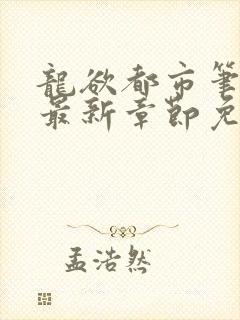 龍欲都市筆
最新章節免
孟浩然